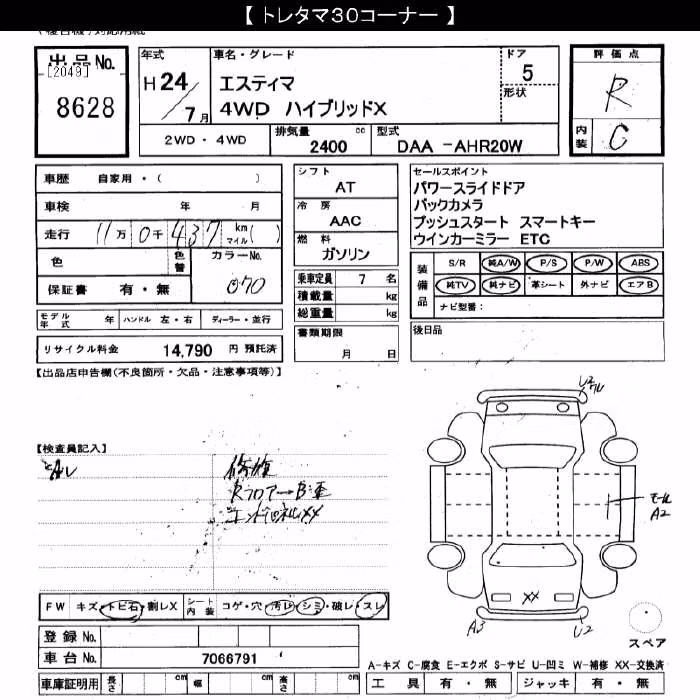 【 トレタマ30コーナー 】
出品No.
[2049]
8628
年式
H 24 / 7 月
車名・グレード
エスティマ
4WD ハイブリッドX
ドア
5
形状
評価点
R
内装 C
2WD・4WD
排気量 2400 cc
型式 DAA -AHR20W
車歴 自家用・( )
車検 年 月
走行 11万 0千 437 km マイル( )
色 色替 カラーNo.
070
保証書 有・無
モデル年式 年 ハンドル 左・右 ディーラー・並行
リサイクル料金 14,790 円 預託済
シフト
AT
冷房
AAC
燃料
ガソリン
乗車定員 7 名
積載量 kg
総重量 kg
書類期限
月 日
セールスポイント
パワースライドドア
バックカメラ
プッシュスタート スマートキー
ウインカーミラー ETC
装備品
S/R 純A/W P/S P/W ABS
純TV 純ナビ 革シート 外ナビ エアB
ナビ型番:
後日品
【出品店申告欄(不良箇所・欠品・注意事項等)】
【検査員記入】
修復
Rフロアー
エンドパネルXX
U2
モール
A2
XX
A3
U2
スペア
FW キズ・トビ石・割レX
シート内装 コゲ・穴・汚レ・シミ・破レ・スレ
登録 No.
車台 No. 7066791
車庫証明用 長さ cm 幅 cm 高さ cm
A-キズ C-腐食 E-エクボ S-サビ U-凹ミ W-補修 XX-交換済
工具 有・無 ジャッキ 有・無